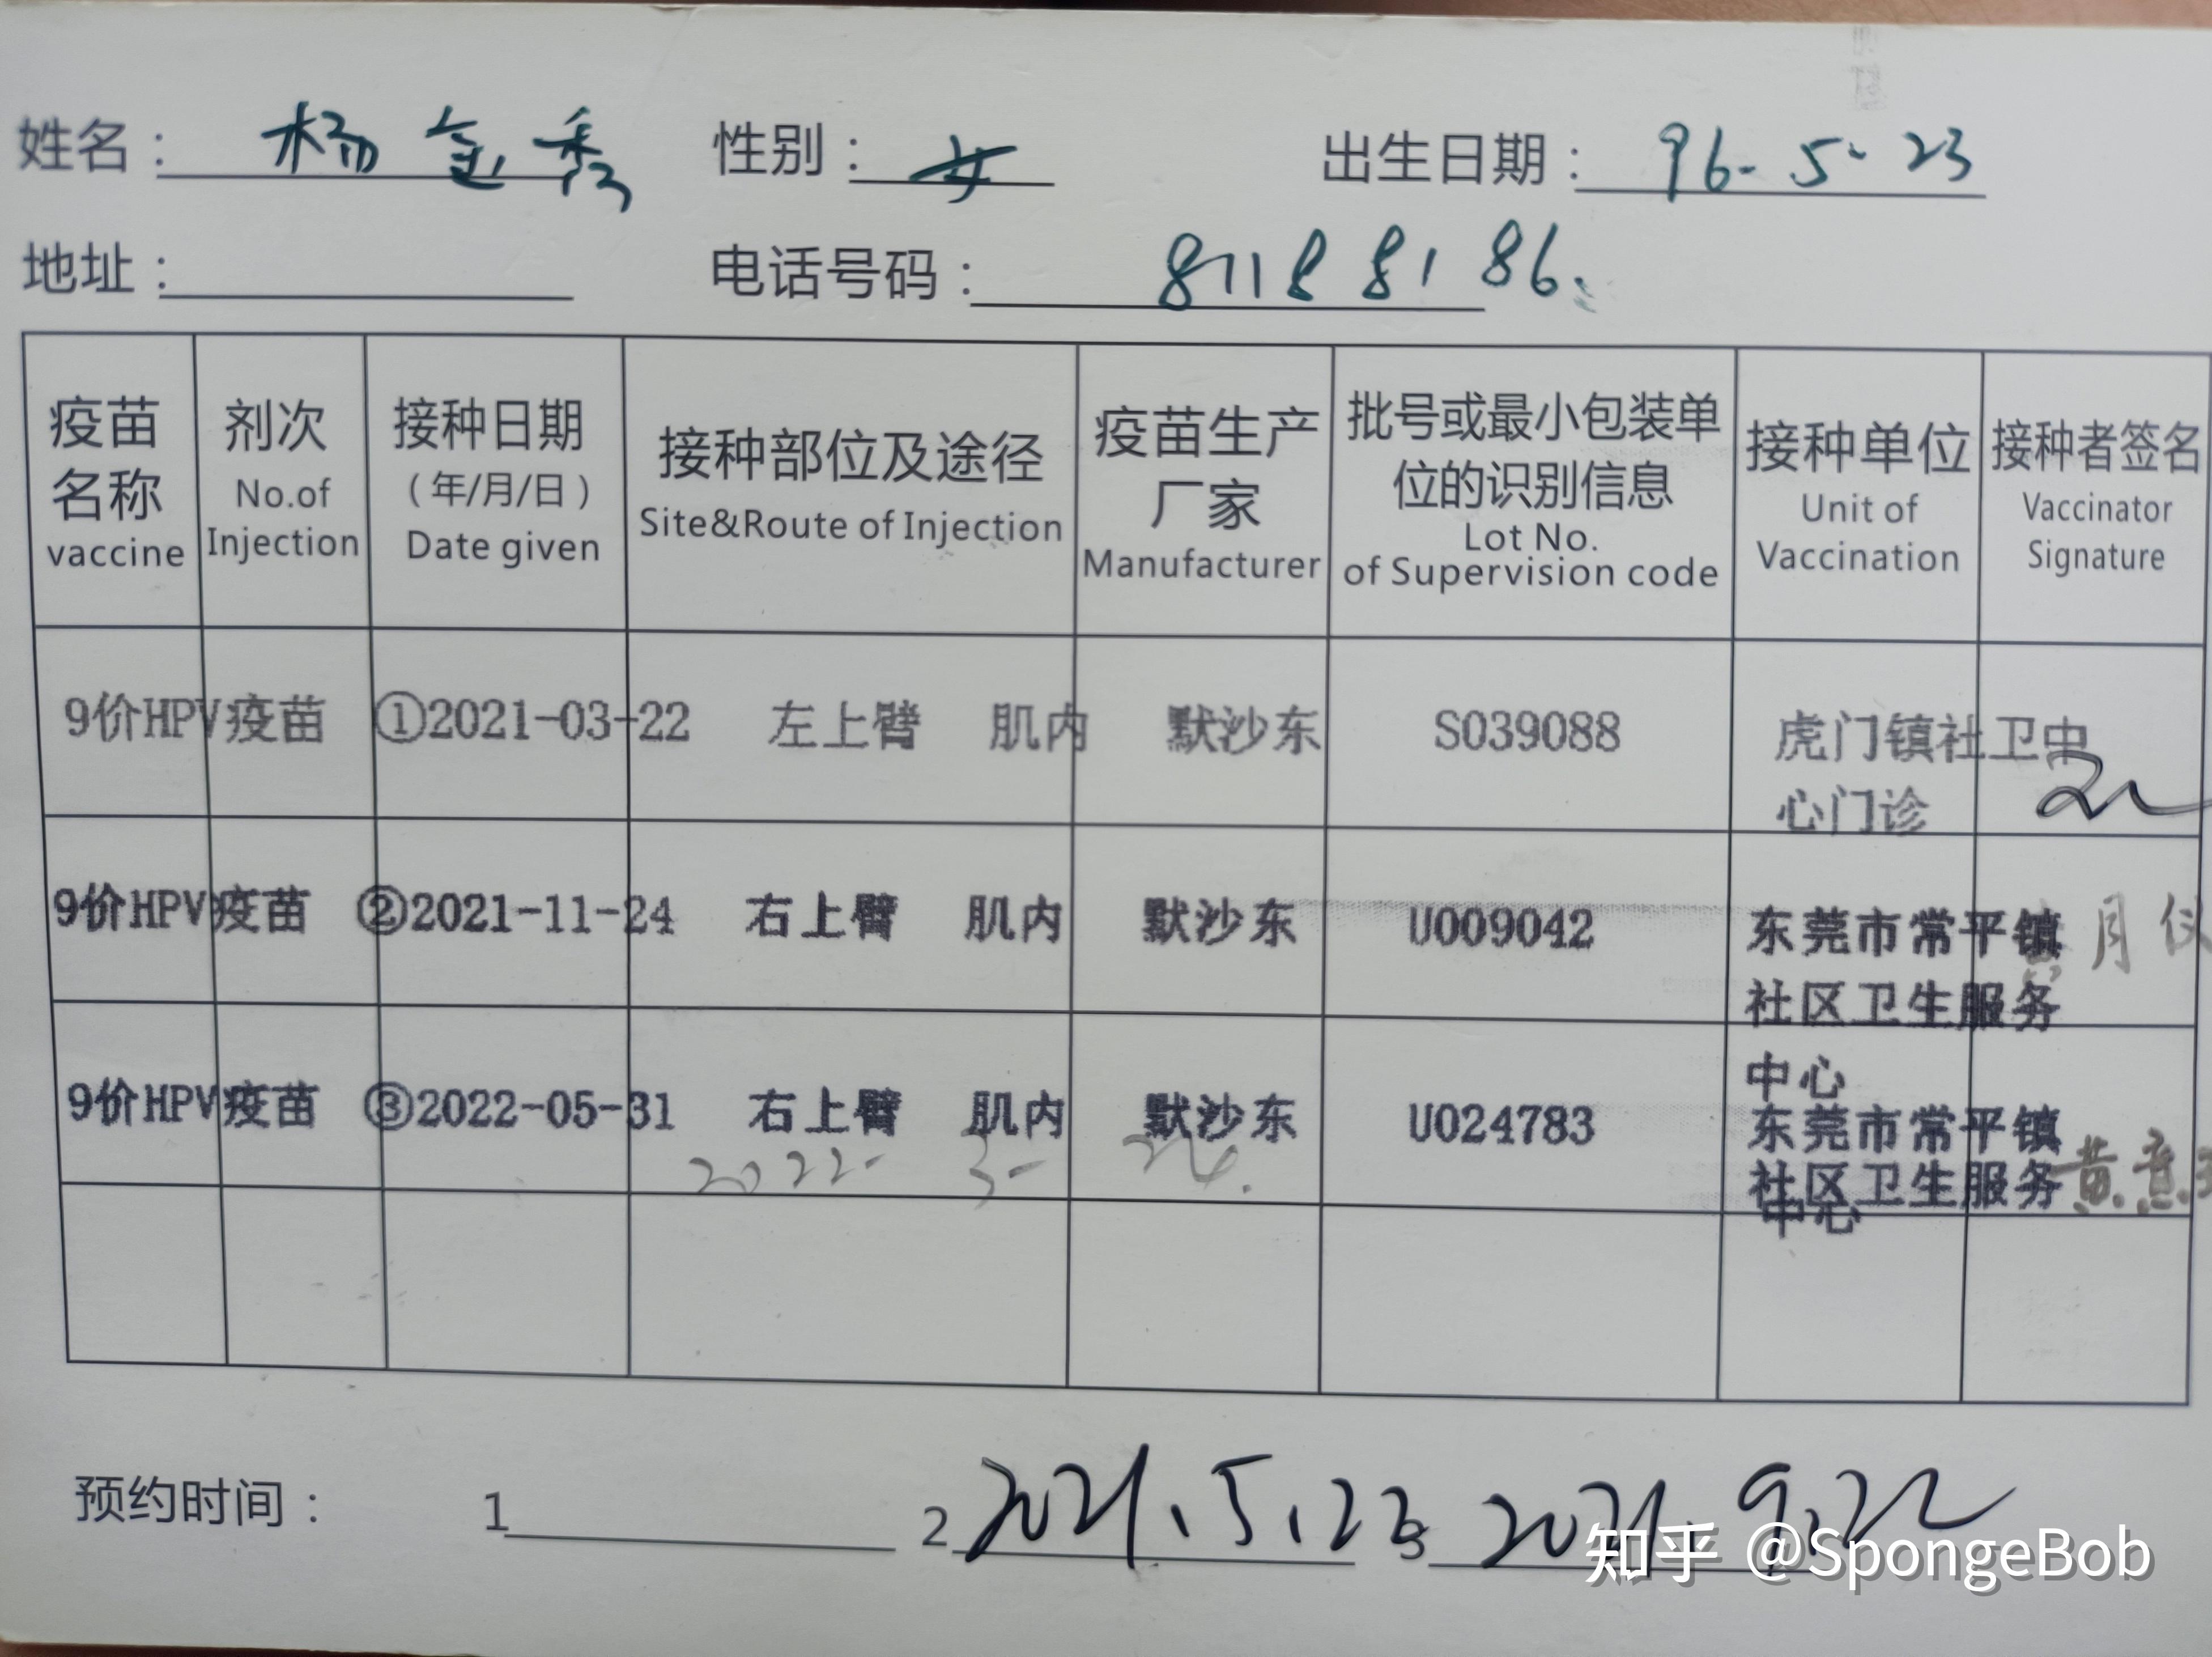 姓名： 杨金秀 性别： 女 出生日期： 96-5-23
地址： 电话号码： 87188186
疫苗名称 vaccine
剂次 No.of Injection
接种日期 （年/月/日） Date given
接种部位及途径 Site&Route of Injection
疫苗生产厂家 Manufacturer
批号或最小包装单位的识别信息 Lot No. of Supervision code
接种单位 Unit of Vaccination
接种者签名 Vaccinator Signature
9价HPV疫苗 ①2021-03-22 左上臂 肌内 默沙东 S039088 虎门镇社卫中心门诊
9价HPV疫苗 ②2021-11-24 右上臂 肌内 默沙东 U009042 东莞市常平镇社区卫生服务中心 月仪
9价HPV疫苗 ③2022-05-31 右上臂 肌内 默沙东 U024783 东莞市常平镇社区卫生服务中心 黄意
2022-3-24.
预约时间： 1 2 2021.5.22 3 2021.9.22
知乎 @SpongeBob